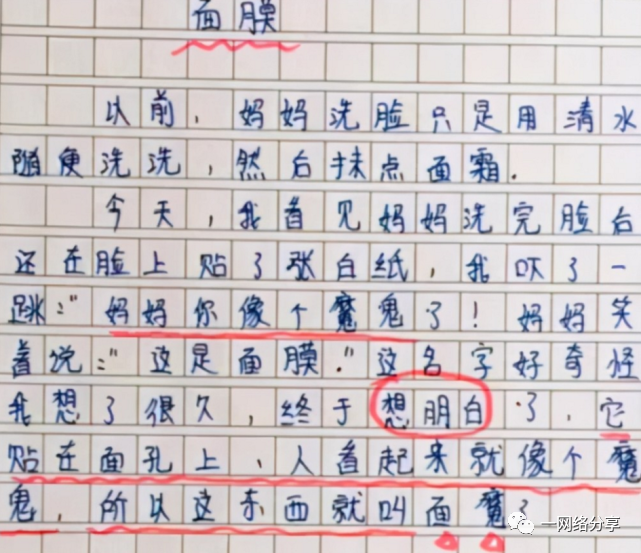 面膜
以前，妈妈洗脸只是用清水
随便洗洗，然后抹点面霜．
今天，我看见妈妈洗完脸后
还在脸上贴了张白纸，我吓了一
跳："妈妈你像个魔鬼了！妈妈笑
着说："这是面膜."这名字好奇怪
我想了很久，终于想明白了，它
贴在面孔上、人看起来就像个魔
鬼，所以这东西就叫面魔了
一网络分享